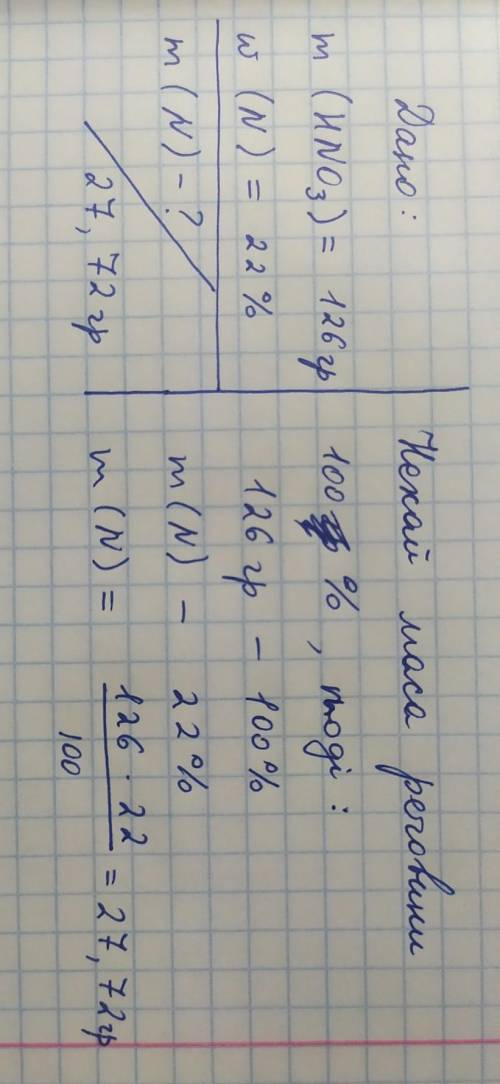 Дано:
m (HNO₃) = 126 гр
w (N) = 22%
m (N) - ?
27,72 гр
Нехай маса речовини
100 %, тоді:
126 гр - 100%
m (N) - 22%
m (N) = 126 · 22 / 100 = 27,72 гр